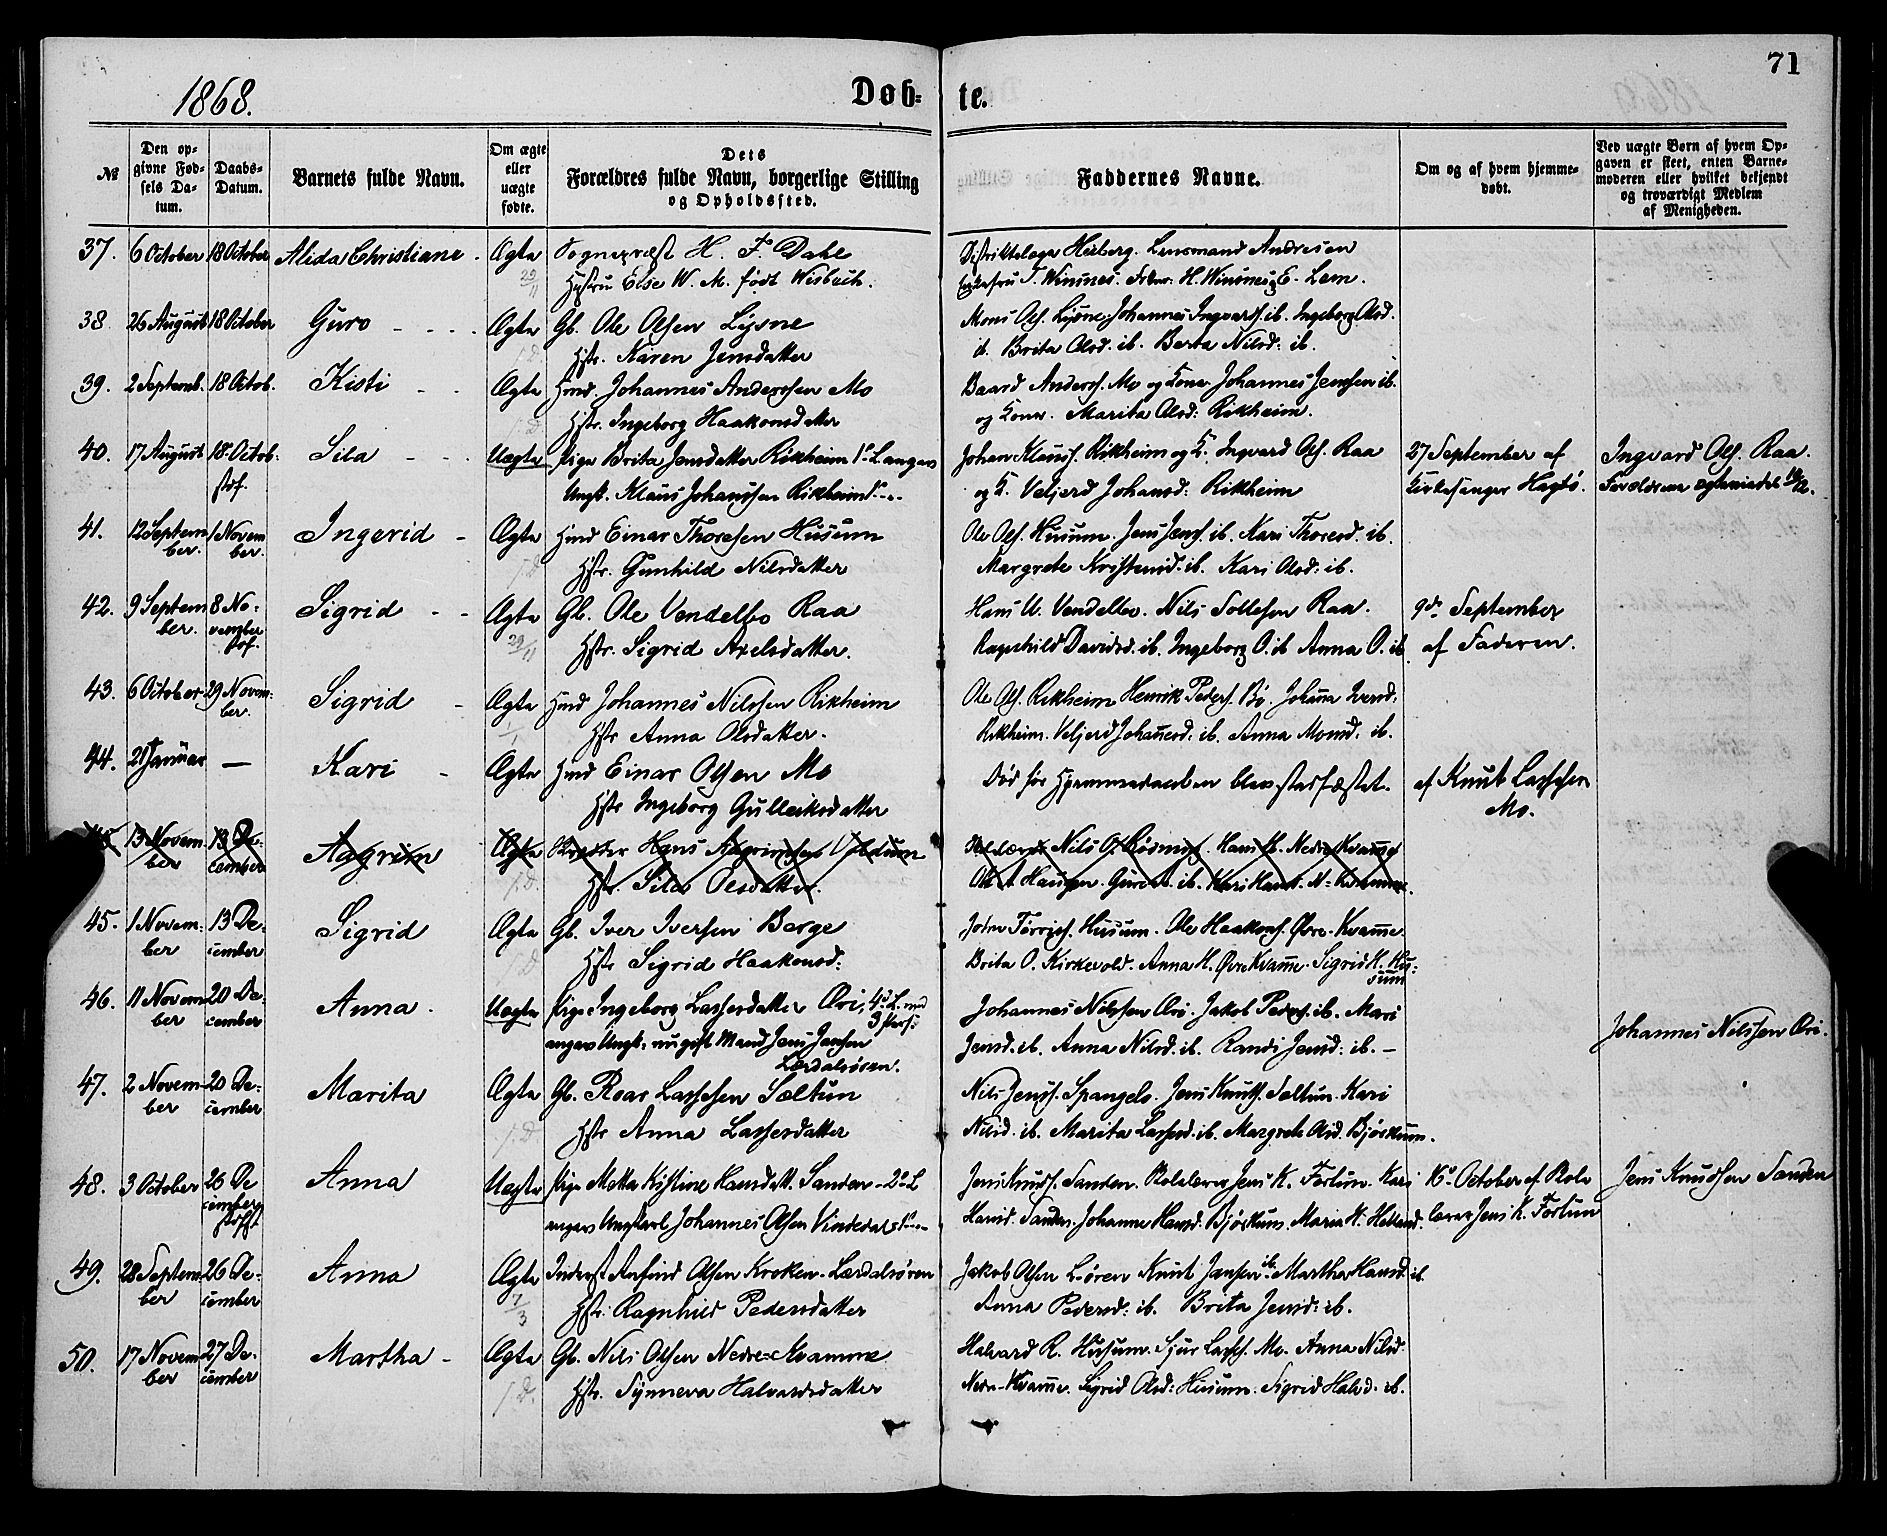 71
1868.
Døb- te.
№
Den op-
givne Fød-
sels Da-
tum.
Daabs-
Datum.
Barnets fulde Navn.
Om ægte
eller
uægte
fødte.
Dets
Forældres fulde Navn, borgerlige Stilling
og Opholdssted.
Faddernes Navne.
Om og af hvem hjemme-
døbt.
Ved uægte Børn af hvem Op-
gaven er skeet, enten Barne-
moderen eller hvilket bekjendt
og troværdigt Medlem
af Menigheden.
37. 6 October 18 October Alida Christiane. Ægte Sognepræst H. F. Dahl
29/11 Hustru Else W. M. født Wisbech.
Lensmand Andresen
T. Winsnes. H. Winsnes E. Lem.
38 26 August 18 October Guro - - - - Ægte Gb. Ole Olsen Lysne
Hstr. Karen Jensdatter
Mons Ols. Lysne. Johannes Ingvards. ib. Ingeborg Olsd.
ib. Brita Olsd. ib. Berta Nilsd: ib.
39. 2 Septemb. 18 Octob. Kisti - - Ægte Hmd. Johannes Anderssen Mo
Hstr. Ingeborg Haakonsdatter
Baard Anderss. Mo og Kone Johannes Jenssen ib.
og Kone. Marita Olsd: Rikheim.
40. 17 August 18 Octob. Sila - - - Uægte Pige Brita Jensdatter Rikheim 1ste Langen
stdf.
Ungk. Klaus Johanssen Rikheim
Johan Klauss. Rikheim og K. Ingvard Ols. Raa
og K. Veljerd Johansd: Rikheim
27 September af
Kirkesanger Hagbø.
Ingvard Ols. Raa.
Forældrene ægteviede
41. 12 Septem- 1 Novem-
ber. ber.
Ingerid - Ægte Hmd Einar Thoresen Husum
Hstr. Gunhild Nilsdatter
Ole Ols. Husum. Jens Jens. ib. Kari Thoresd. ib.
Margrete Kristensd. ib. Kari Olsd: ib.
42. 9 Septem- 8 No-
ber. vember
stdf.
Sigrid - - Ægte Gb. Ole Vendelbo Raa
29/11 Hstr. Sigrid Axelsdatter.
Hans U. Vendelbo. Nils Tollefsen Raa.
Ragnhild Davidsd. ib. Ingeborg O. ib Anna O. ib.
9de September
af Faderen.
43. 6 October 29 Novem-
ber.
Sigrid - Ægte Hmd Johannes Nilssen Rikheim
Hstr Anna Olsdatter.
Ole Ols. Rikheim Henrik Peders. Bø. Johanna Iversd:
Rikheim. Veljerd Johannesd. ib. Anna Monsd. ib.
44. 21 Januar — Kari - Ægte Hmd Einar Olsen Mo
Hstr Ingeborg Gulleiksdatter
Død før Hjemmedaaben blev stadfæstet.
af Knut Lasssen
Mo.
45 13 Novem- 13 De-
ber cember
Aagrim Ægte Hans Aagrimsen Voldum
Hstr. Sile Olesdatter.
Nils O. Hans H. Nedre Kvamme
Haugen. Guro ib. Kari Hansd. N. Kvamme.
45. 1 Novem- 13 De-
ber cember
Sigrid Ægte Gb. Iver Iversen Berge
Hstr Sigrid Haakensd:
Husum. Ole Haakens. Øvre-Kvamme
Brita O. Kirkevold. Anna H. Øvre Kvamme. Sigrid H. Hu-
sum
46. 11 Novem 20 De-
ber cember
Anna. Uægte Pige Ingeborg Lassesdatter Øri, 4de L. med
3
angivn Ungk. nu gift Mand Jens Jensen
Lærdalsøren.
Johannes Nilssen Øri. Jakob Peders. ib. Mari
Jensd. ib. Anna Nilsd. ib. Randi Jensd: ib. -
Johannes Nilssen Øri.
47. 2 Novem- 20 De-
ber cember
Marita Ægte Gb. Roar Lassesen Sæltun
Hstr Anna Lassesdatter
Nils Jenss. Spangelo. Jens Knuts. Sæltun. Kari
Nilsd. ib. Marita Lassesd. ib. Margrete Olsd. Bjørkum.
48. 3 October 26 De
cember
stdf.
Anna Uægte Pige Metta Kistine Hansdatt. Sanden - 2d L
angivn Ungkarl Johannes Olsen Vindedal
Jens Knuds. Sanden. Rolelærer Jens K. Fortun. Kari
Hansd. Sanden. Johanne Hansd. Bjørkum. Maria H.
October af
lærer Jens K. Fortun
Jens Knudsen Sanden
49. 28 Septem- 26 De-
ber cember
Anna Ægte Inderst Anfind Olsen Kroken. Lærdalsøren
7/3 Hstr. Ragnhild Pedersdatter
Jakob Olsen Løren Knut Jansen ib. Martha Hansd. ib.
Anna Pedersd: ib. Brita Jensd: ib.
50. 17 Novem 27 De-
ber cember
Martha - Ægte Gb. Nils Olsen Nedre-Kvamme
Hstr. Synneva Halvardsdatter
Halvard R. Husum. Sjur Lasss. Mo. Anna Nilsd.
Nedre-Kvamme. Sigrid Olsd: Husum. Sigrid Halvd. ib.